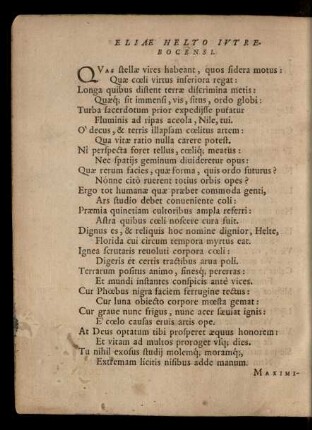 ELIAE HELTO IVTRE-
BOCENSI.
QVas stellæ vires habeant, quos sidera motus:
Quæ cœli virtus inferiora regat:
Longa quibus distent terræ discrimina metis:
Quæq; sit immensi, vis, situs, ordo globi:
Turba sacerdotum prior expedijsse putatur
Fluminis ad ripas aceola, Nile, tui.
O' decus, & terris illapsam cœlitus artem:
Qua vitæ ratio nulla carere potest.
Ni perspecta foret tellus, cœliq; meatus:
Nec spatijs geminum diuideretur opus:
Quæ rerum facies, quæ forma, quis ordo futurus?
Nónne citò rueret totius orbis opes?
Ergo tot humanæ quæ præbet commoda genti,
Ars studio debet conueniente coli:
Præmia quinetiam cultoribus ampla referri:
Astra quibus cœli noscere cura fuit.
Dignus es, & reliquis hoc nomine dignior, Helte,
Florida cui circum tempora myrtus eat.
Ignea scrutaris reuoluti corpora cœli:
Digeris et certis tractibus arua poli.
Terrarum positus animo, finesq; pererras:
Et mundi instantes conspicis antè vices.
Cur Phœbus nigra faciem ferrugine tectus:
Cur luna obiecto corpore mœsta gemat:
Cur graue nunc frigus, nunc acer sæuiat ignis:
E cœlo causas eruis artis ope.
At Deus optatum tibi prosperet æquus honorem:
Et vitam ad multos proroget vsq; dies.
Tu nihil exosus studij molemq́;, moramq́;,
Extremam licitis nisibus adde manum.
MAXIMI-